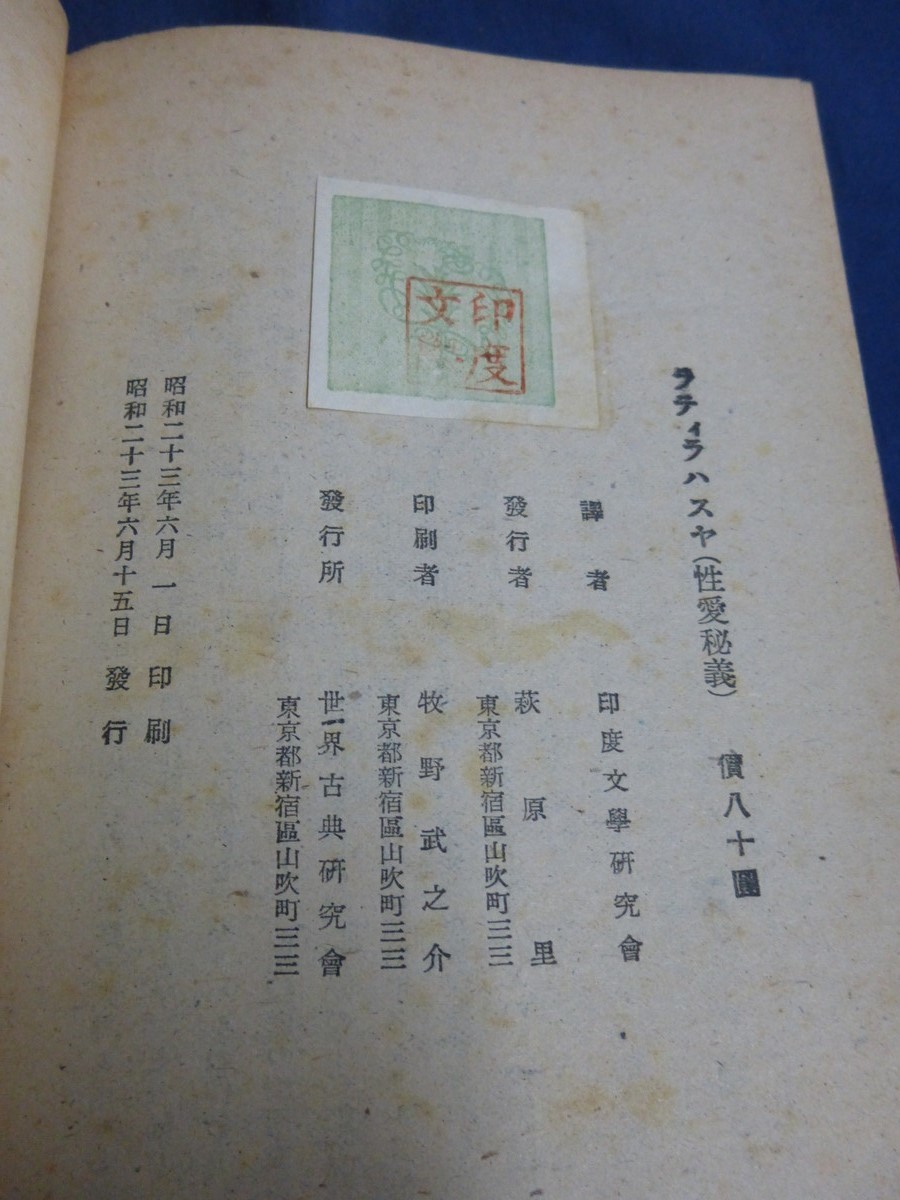 ラティラハスヤ(性愛秘義) 價八十圓
譯者 印度文學研究會
發行者 萩原里
東京都新宿區山吹町三三
印刷者 牧野武之介
東京都新宿區山吹町三三
發行所 世界古典研究會
東京都新宿區山吹町三三
昭和二十三年六月一日印刷
昭和二十三年六月十五日發行
印度
文